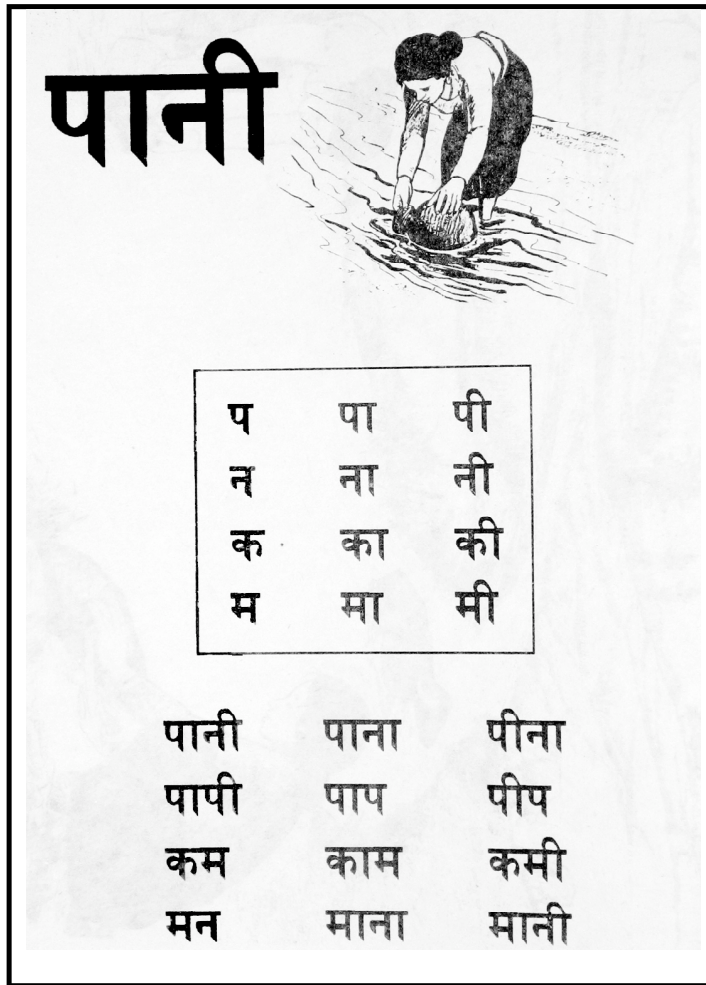 पानी
प पा पी
न ना नी
क का की
म मा मी
पानी पाना पीना
पापी पाप पीप
कम काम कमी
मन माना मानी